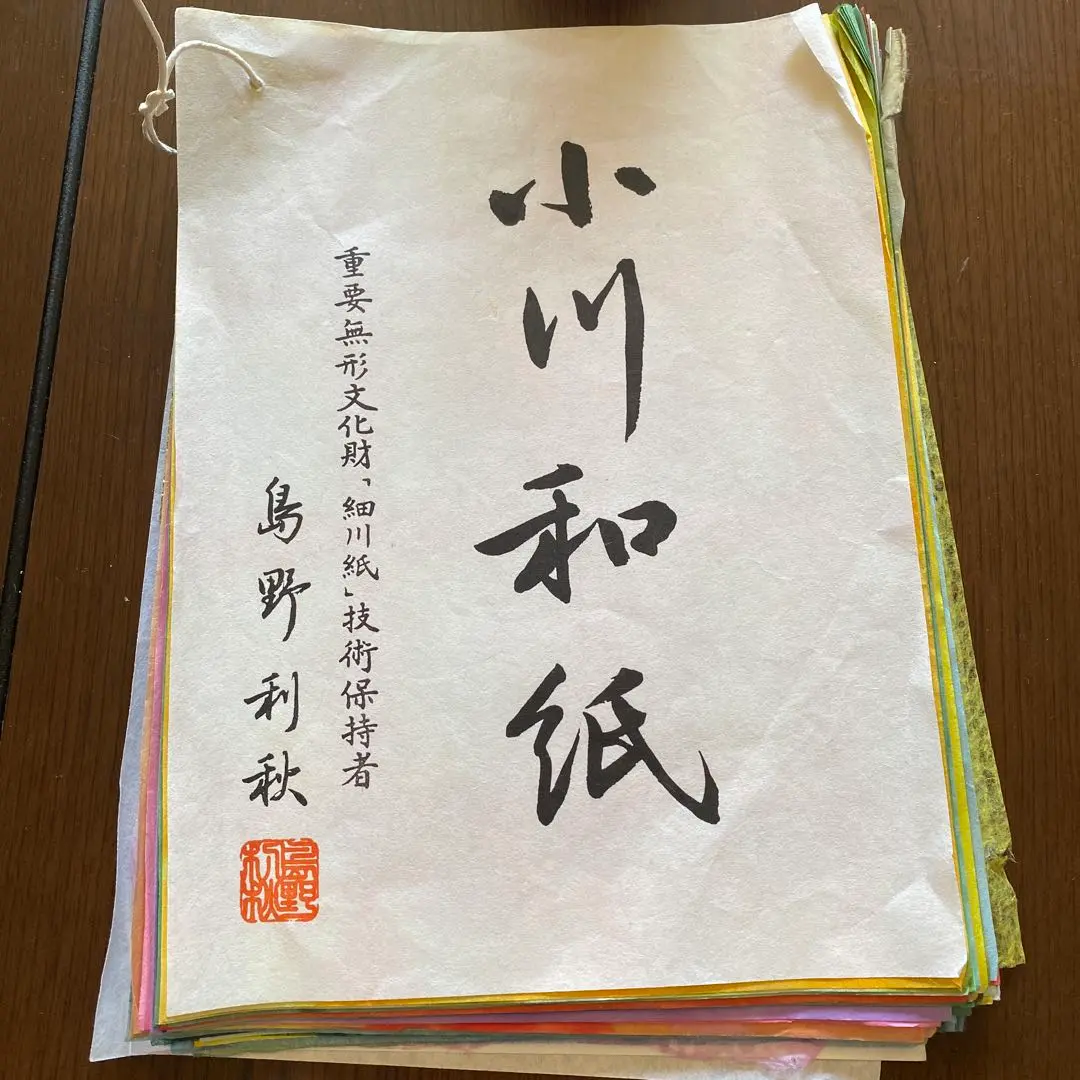 小川和紙
重要無形文化財「細川紙」技術保持者
島野利秋
島野利秋